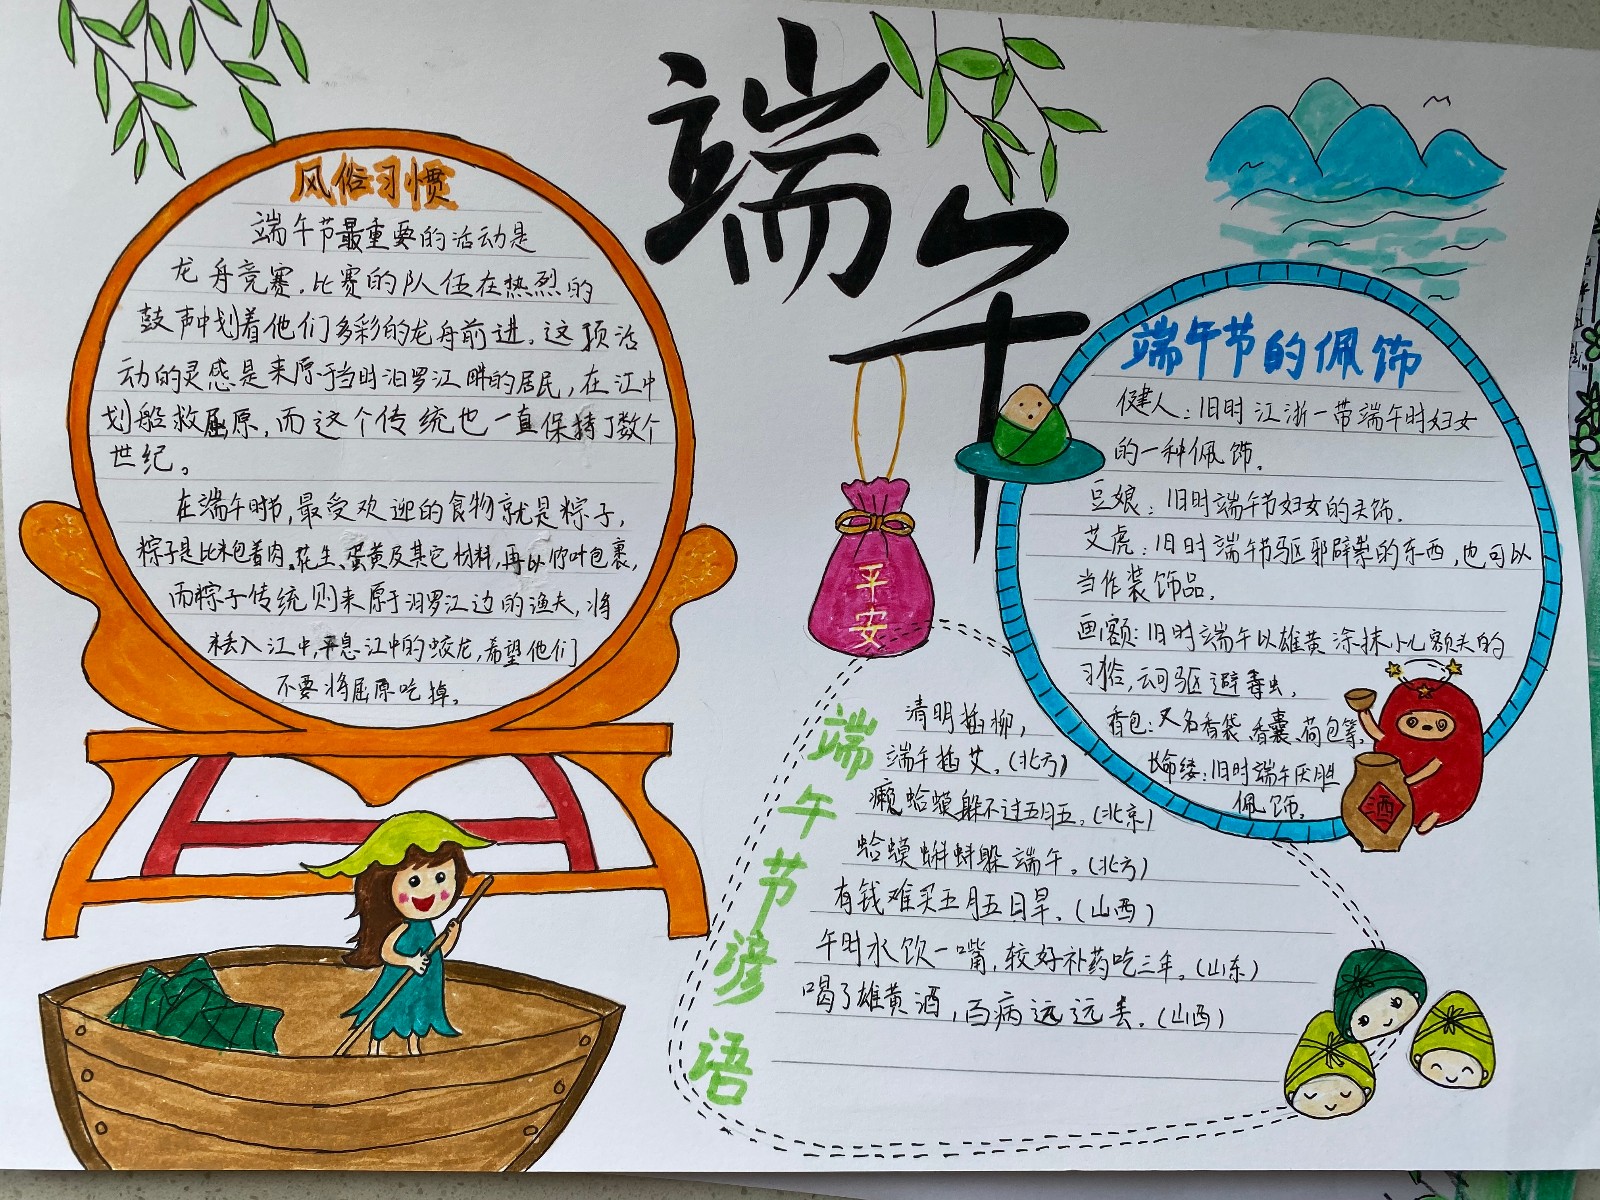 端午
风俗习惯
端午节最重要的活动是
龙舟竞赛,比赛的队伍在热烈的
鼓声中划着他们多彩的龙舟前进。这项活
动的灵感是来原于当时汨罗江畔的居民,在江中
划船救屈原,而这个传统也一直保持了数个
世纪。
在端午时节,最受欢迎的食物就是粽子,
粽子是比米包着肉、花生、蛋黄及其它材料,再以你叶包裹,
而粽子传统则来原于汨罗江边的渔夫,将
米丢入江中,平息江中的蛟龙,希望他们
不要将屈原吃掉。
平安
端午节的佩饰
健人:旧时江浙一带端午时妇女
的一种佩饰。
豆娘:旧时端午节妇女的头饰.
艾虎:旧时端午节驱邪辟祟的东西,也可以
当作装饰品.
画额:旧时端午以雄黄涂抹小儿额头的
习俗,云可驱避毒虫.
香包:又名香袋、香囊、荷包等.
长命缕:旧时端午厌胜
佩饰.
酒
端午节谚语
清明插柳,
端午插艾.(北方)
癞蛤蟆躲不过五月五.(北京)
蛤蟆蝌蚪躲端午.(北方)
有钱难买五月五日旱.(山西)
午时水饮一嘴,较好补药吃三年.(山东)
喝了雄黄酒,百病远远丢.(山西)